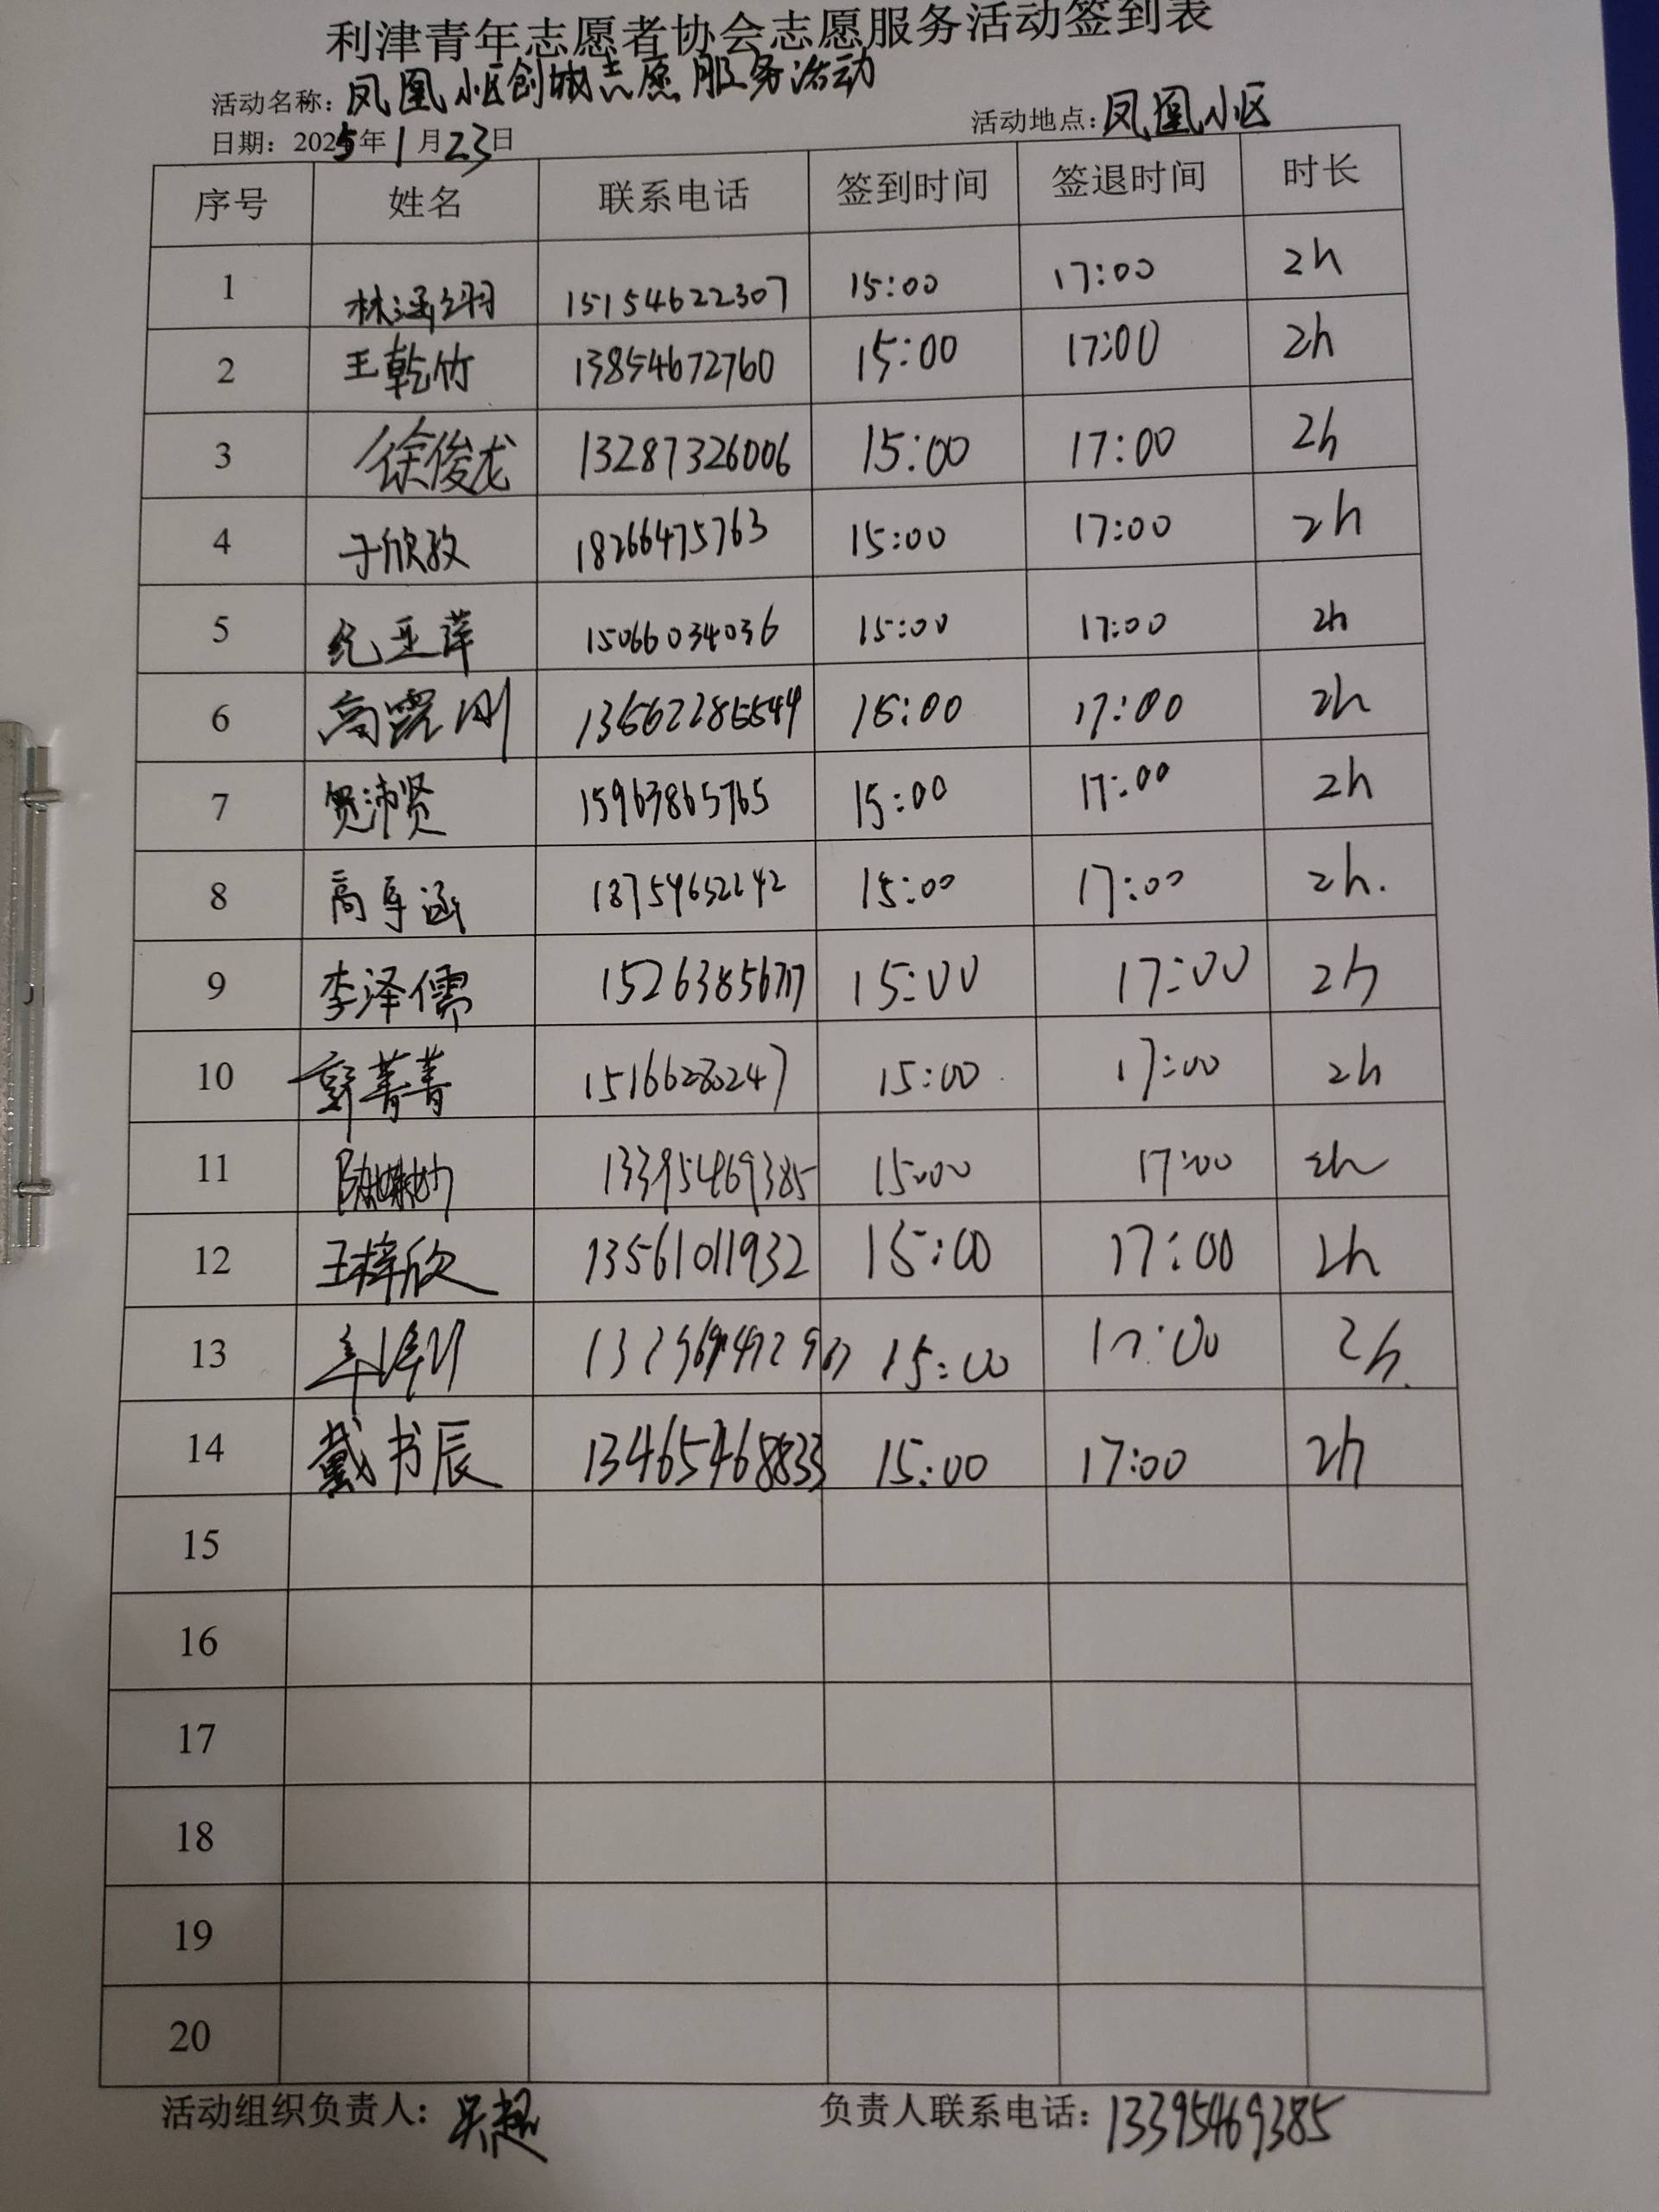 利津青年志愿者协会志愿服务活动签到表
活动名称: 凤凰小区创城志愿服务活动
日期: 2025年1月23日 活动地点: 凤凰小区
序号 姓名 联系电话 签到时间 签退时间 时长
1 林涵羽 15154622307 15:00 17:00 2h
2 王乾竹 13854672760 15:00 17:00 2h
3 徐俊龙 13287326006 15:00 17:00 2h
4 于欣孜 18266475763 15:00 17:00 2h
5 纪亚萍 15066034036 15:00 17:00 2h
6 15:00 17:00 2h
7 贾沛贤 15963865765 15:00 17:00 2h
8 15:00 17:00 2h.
9 李泽儒 15:00 17:00 2h
10 郭菁菁 15166280247 15:00 17:00 2h
11 13395469385 15:00 17:00 2h
12 王梓欣 13561011932 15:00 17:00 2h
13 15:00 17:00 2h.
14 戴书辰 13465468833 15:00 17:00 2h
15
16
17
18
19
20
活动组织负责人: 吴超 负责人联系电话: 13395469385